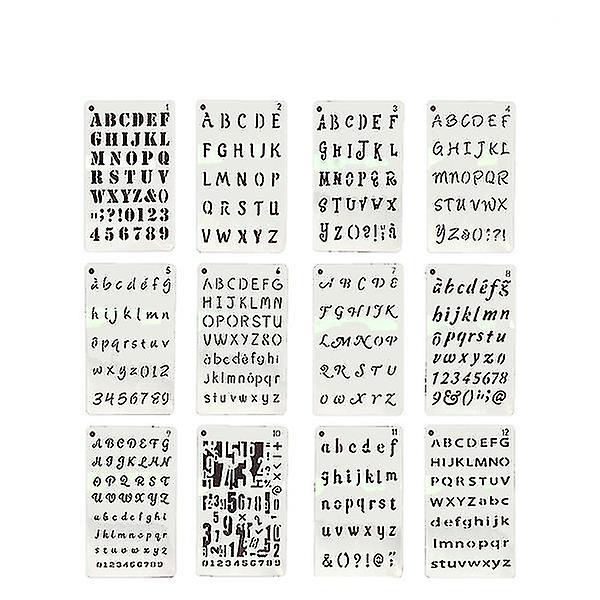 1
ABCDEF
GHIJKL
MNOPQ
RSTUV
WXYZ&O
";?!0123
456789
2
ABCDE
FGHIJK
LMNOP
QRSTU
VWXYZ
3
ABCDEF
GHIJKL
MNOPQR
STUVWX
YZ()?!;à
4
ABCDEF
GHIJKL
MNOPQR
STUVWX
YZ&():?!
5
àbcdéfg̃
hijklmn
ôpqrstuv
wxyz012
3456789
6
ABCDEFG
HIJKLMN
OPQRSTU
VWXYZ&O
àbcdèfghi
jklmnópqr
stuvwxyz
7
ABCDE
FGHIJK
LMNOP
QRSTU
VWXYZ
8
àbcdéfg̃
hijklmn
ôpqrstu
vwxyz0
12345678
9&()!;"¡@
9
ABCDEFG
HIJKLMN
OPQRST
UVWXYZ
abcdefghi
jklmnopqr
stuvwxyz
0123456789
10
0123456789
11
abcdef
ghijklm
nopqrst
uvwxyz
&()?!@;"
12
ABCDEFG
HIJKLMNO
PQRSTUV
WXYZabc
defghijk
lmnopqr
stuvwxyz